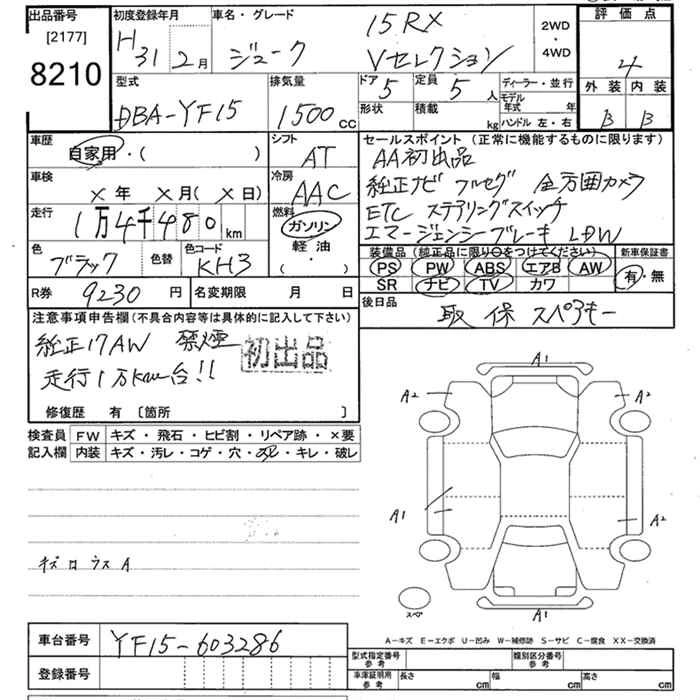 出品番号
[2177]
8210
初度登録年月
H31年 2月
車名・グレード
ジューク 15RX
Vセレクション
2WD
・
4WD
評価点
4
外装 内装
B B
型式
DBA-YF15
排気量
1500cc
ドア 5
定員 5人
形状
積載 kg
ディーラー・並行
モデル年式 年
ハンドル 左・右
車歴
自家用・( )
シフト
AT
車検
×年 ×月(×日)
冷房
AAC
走行
1万4千480km
燃料
ガソリン
軽油
( ・ )
色
ブラック
色替
色コード
KH3
セールスポイント(正常に機能するものに限ります)
AA初出品
純正ナビ フルセグ 全方囲カメラ
ETC ステアリングスイッチ
エマージェンシーブレーキ LDW
装備品(純正品に限り○をつけてください)
PS PW ABS エアB AW
SR ナビ TV カワ
新車保証書
有・無
R券 9230円
名変期限 月 日
後日品
取 保 スペアキー
注意事項申告欄(不具合内容等は具体的に記入して下さい)
純正17AW 禁煙
初出品
走行1万km台!!
修復歴 有 〔箇所 〕
検査員記入欄
FW キズ・飛石・ヒビ割・リペア跡・×要
内装 キズ・汚レ・コゲ・穴・スレ・キレ・破レ
キズロウスA
A1
A2
A2
A1
A2
A1
スペア
A-キズ E-エクボ U-凹み W-補修跡 S-サビ C-腐食 XX-交換済
車台番号
YF15-603286
登録番号
型式指定番号
参考
類別区分番号
参考
車庫証明用
参考
長さ cm
幅 cm
高さ cm